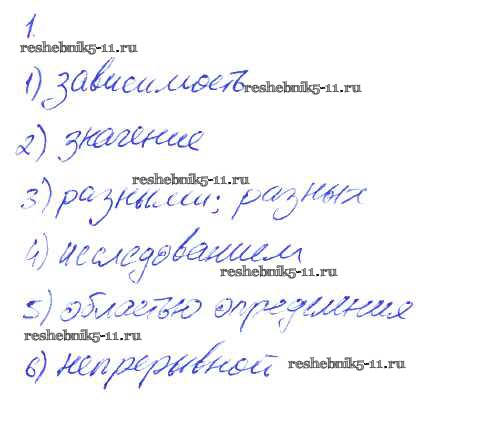 1.
reshebnik5-11.ru
1) зависимость
reshebnik5-11.ru
2) значение
reshebnik5-11.ru
3) разными; разных
4) исследованием
reshebnik5-11.ru
5) областью определения
reshebnik5-11.ru
6) непрерывной
reshebnik5-11.ru